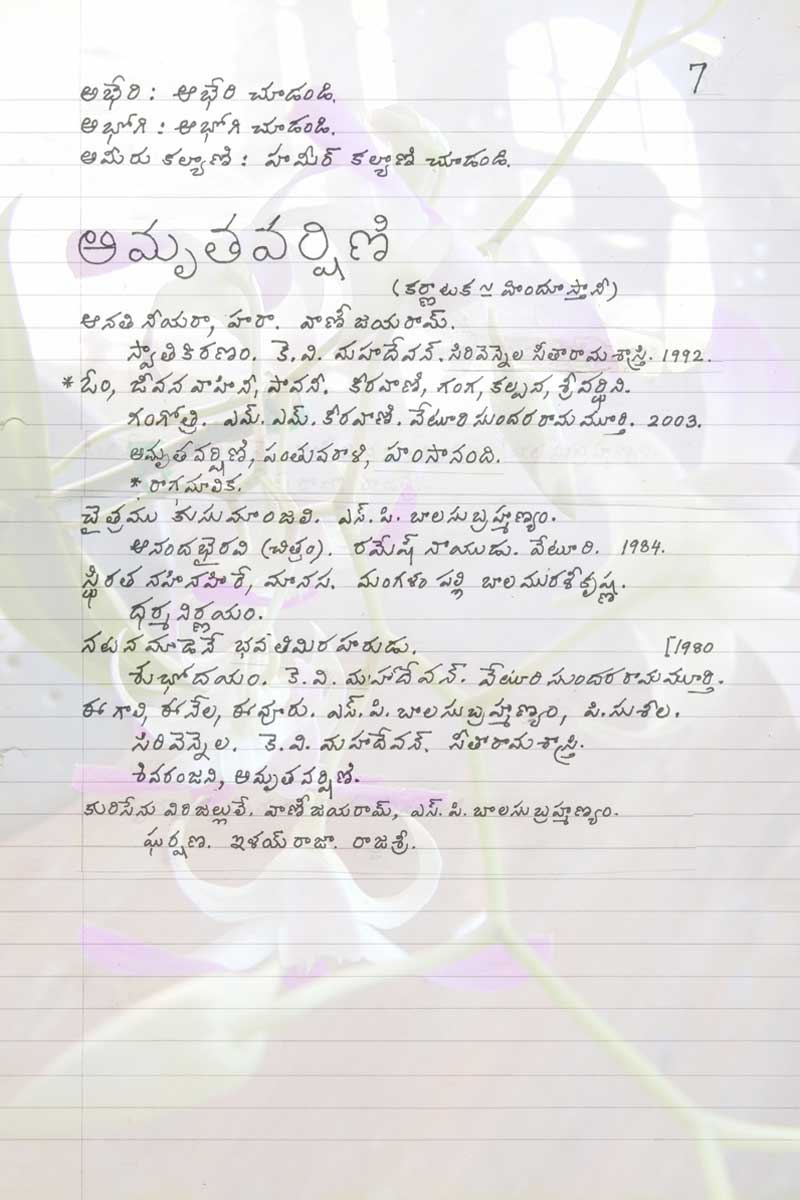 7
అభేరి : ఆభేరి చూడండి.
అభోగి : ఆభోగి చూడండి.
అమీరు కల్యాణి : హమీర్ కల్యాణి చూడండి.
అమృతవర్షిణి
(కర్ణాటక ≃ హిందూస్తానీ)
ఆనతి నీయరా, హరా. వాణీ జయరామ్.
స్వాతికిరణం. కె. వి. మహాదేవన్. సిరివెన్నెల సీతారామశాస్త్రి. 1992.
* ఓం, జీవన వాహినీ, పావనీ. కీరవాణి, గంగ, కల్పన, శ్రీవర్ధిని.
గంగోత్రి. ఎమ్. ఎమ్. కీరవాణి. వేటూరి సుందరరామమూర్తి. 2003.
అమృతవర్షిణి, పంతువరాళి, హంసానంది.
* రాగమాలిక.
చైత్రము కుసుమాంజలి. ఎస్. పి. బాలసుబ్రహ్మణ్యం.
ఆనందభైరవి (చిత్రం). రమేష్ నాయుడు. వేటూరి. 1984.
స్థిరత నహినహిరే, మానస. మంగళం పల్లి బాలమురళీకృష్ణ.
ధర్మనిర్ణయం.
నటనమాడెనే భవతిమిర హరుడు. [1980
శుభోదయం. కె. వి. మహాదేవన్. వేటూరి సుందరరామమూర్తి.
ఈ గాలి, ఈ నేల, ఈ వూరు. ఎస్. పి. బాలసుబ్రహ్మణ్యం, పి. సుశీల.
సిరివెన్నెల. కె. వి. మహాదేవన్. సీతారామశాస్త్రి.
శివరంజని, అమృతవర్షిణి.
కురిసేను విరిజల్లులే. వాణీ జయరామ్, ఎస్. పి. బాలసుబ్రహ్మణ్యం.
ఘర్షణ. ఇళయ్ రాజా. రాజశ్రీ.